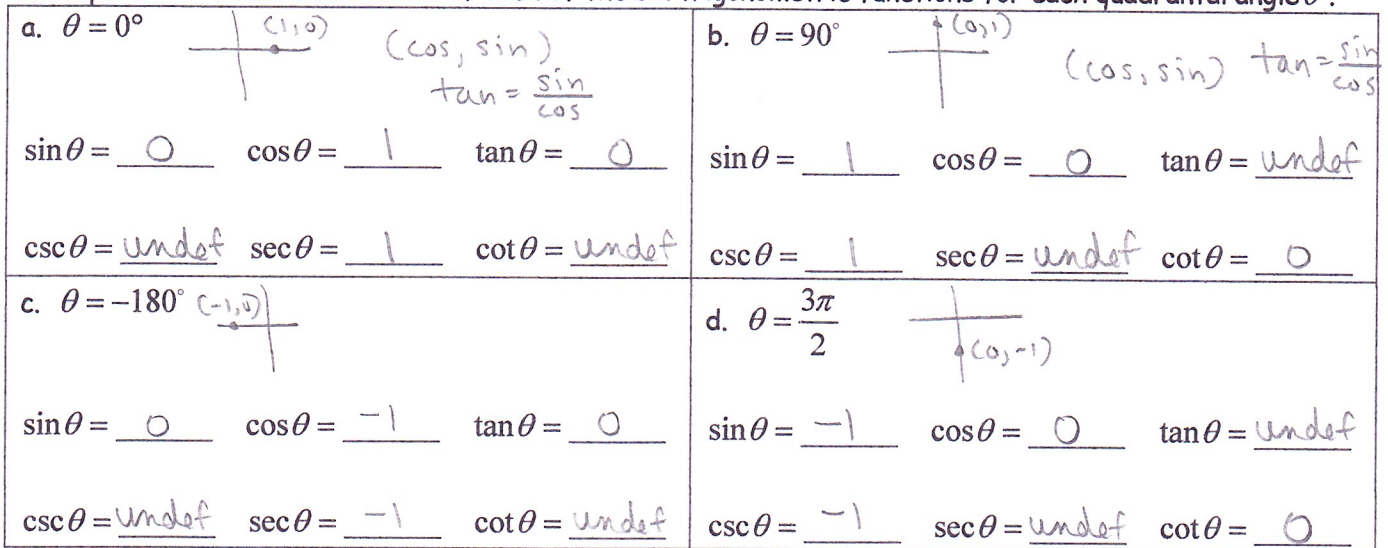 trigonometric functions for each quadrantal angle θ.
a. θ = 0°
(1,0)
(cos, sin)
tan = sin/cos
sinθ = 0 cosθ = 1 tanθ = 0
cscθ = undef secθ = 1 cotθ = undef
b. θ = 90°
(0,1)
(cos, sin) tan = sin/cos
sinθ = 1 cosθ = 0 tanθ = undef
cscθ = 1 secθ = undef cotθ = 0
c. θ = −180° (-1,0)
sinθ = 0 cosθ = -1 tanθ = 0
cscθ = undef secθ = -1 cotθ = undef
d. θ = 3π/2
(0,-1)
sinθ = -1 cosθ = 0 tanθ = undef
cscθ = -1 secθ = undef cotθ = 0